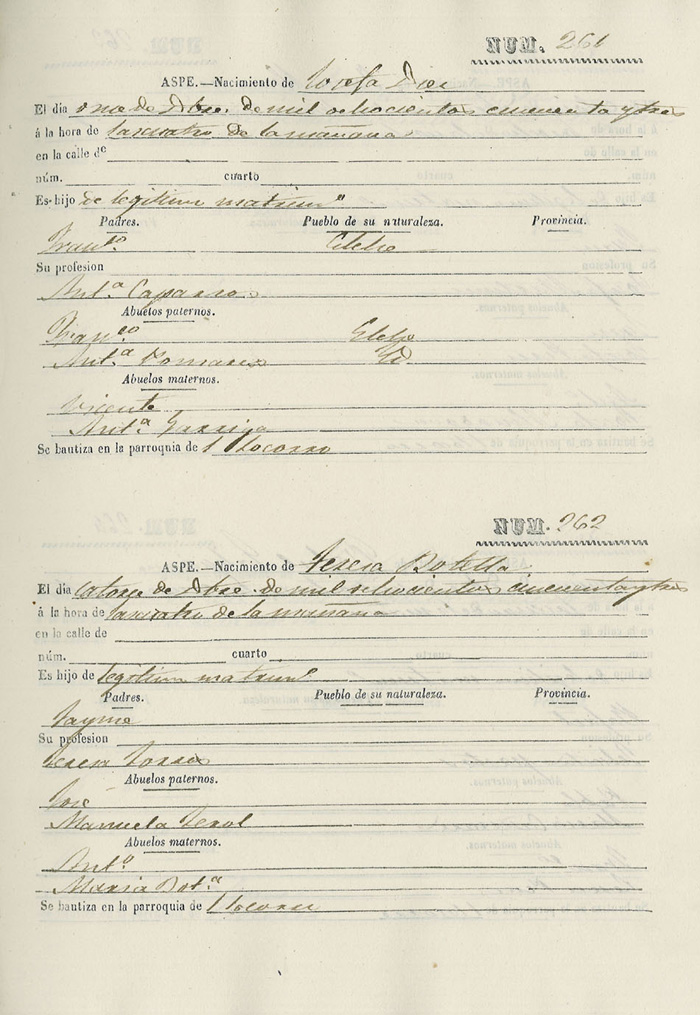 NUM. 261
ASPE.—Nacimiento de Josefa
El dia once de Dbre. de mil ochocientos cincuenta y tres
á la hora de las cuatro de la mañana
en la calle de
núm. cuarto
Es hijo de legitim matrim°
Padres. Pueblo de su naturaleza. Provincia.
Fran.co Elche
Su profesion
Ant.a Caparros
Abuelos paternos.
Fran.co Elche
Ant.a Pomares Id.
Abuelos maternos.
Vicente
Ant.a
Se bautiza en la parroquia de l Socorro
NUM. 262
ASPE.—Nacimiento de Teresa Botella
El dia catorce de Dbre. de mil ochocientos cincuenta y tres
á la hora de las cuatro de la mañana
en la calle de
núm. cuarto
Es hijo de legitim matrim°
Padres. Pueblo de su naturaleza. Provincia.
Jayme
Su profesion
Teresa Torres
Abuelos paternos.
José
Manuela Terol
Abuelos maternos.
Ant.o
Maria Bot.a
Se bautiza en la parroquia de l Socorro